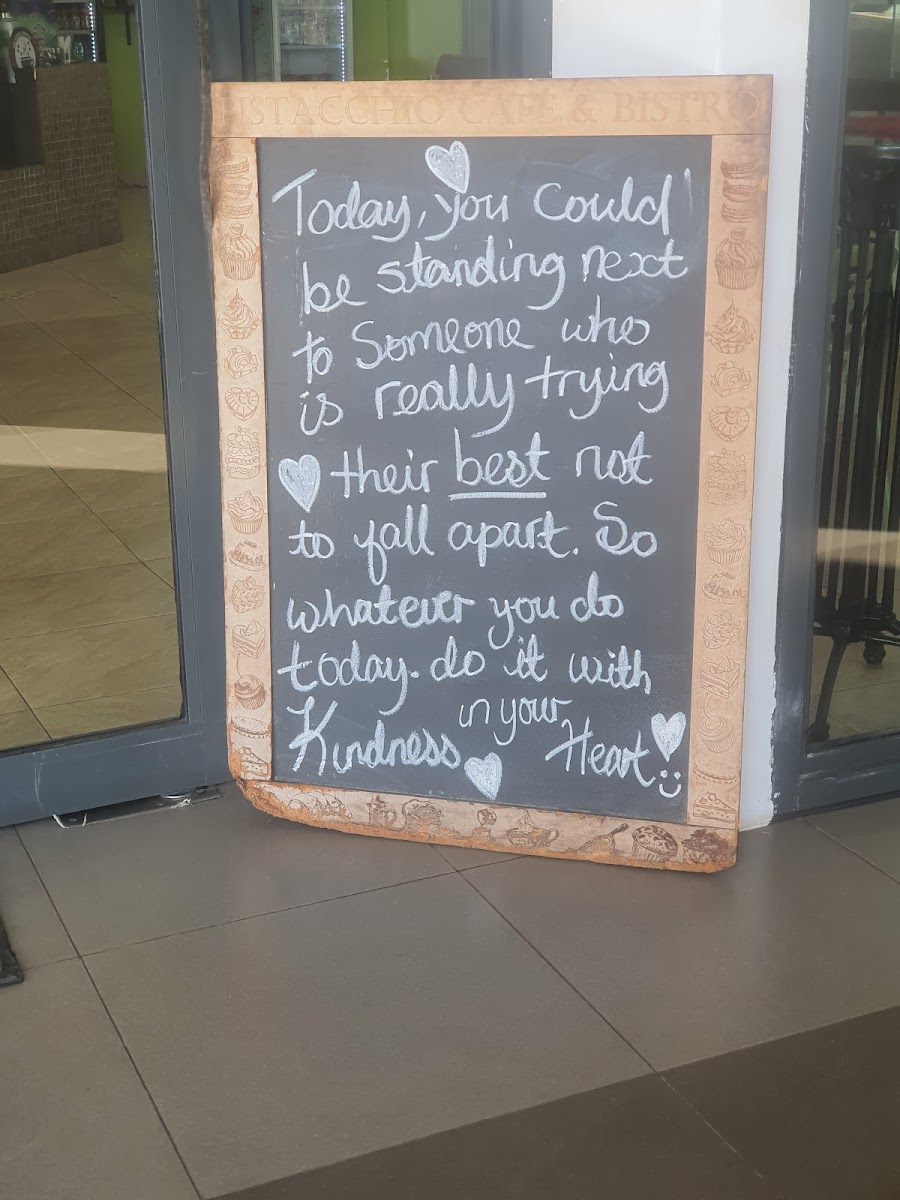 PISTACCHIO CAFE & BISTRO
Today, you Could
be standing next
to Someone who
is really trying
their best not
to fall apart. So
whatever you do
today. do it with
Kindness in your Heart